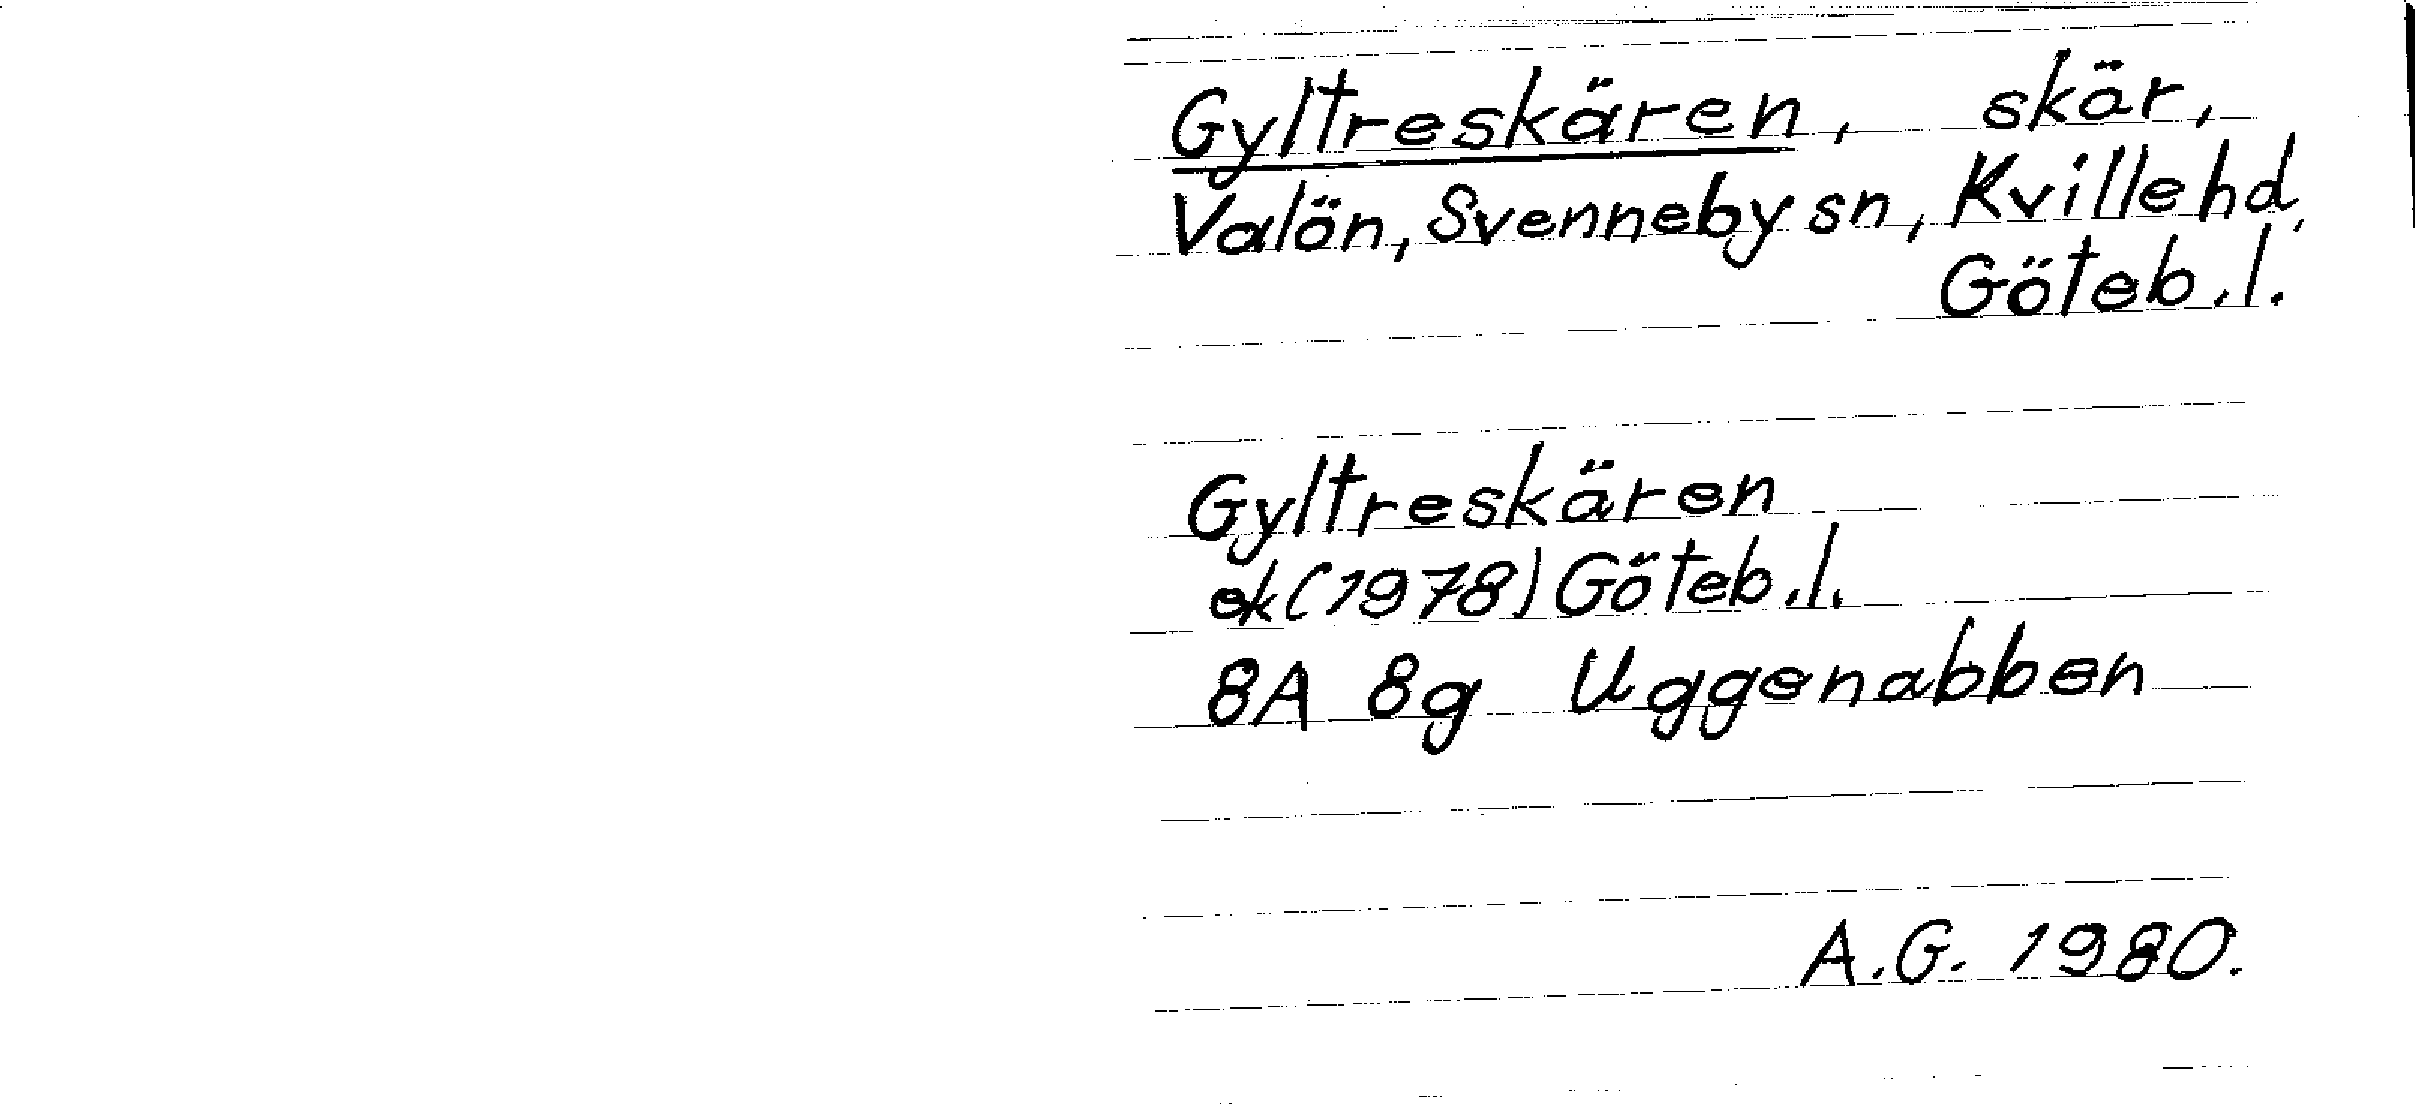 Gyltreskären, skär,
Valön, Svenneby sn, Kville hd,
Göteb. l.
Gyltreskären
ek (1978) Göteb. l.
8A 8g Uggenabben
A.G. 1980.